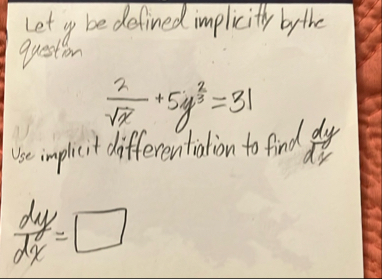 Let y be defined implicitly by the
question
2/√x + 5y^(2/3) = 31
Use implicit differentiation to find dy/dx
dy/dx = □